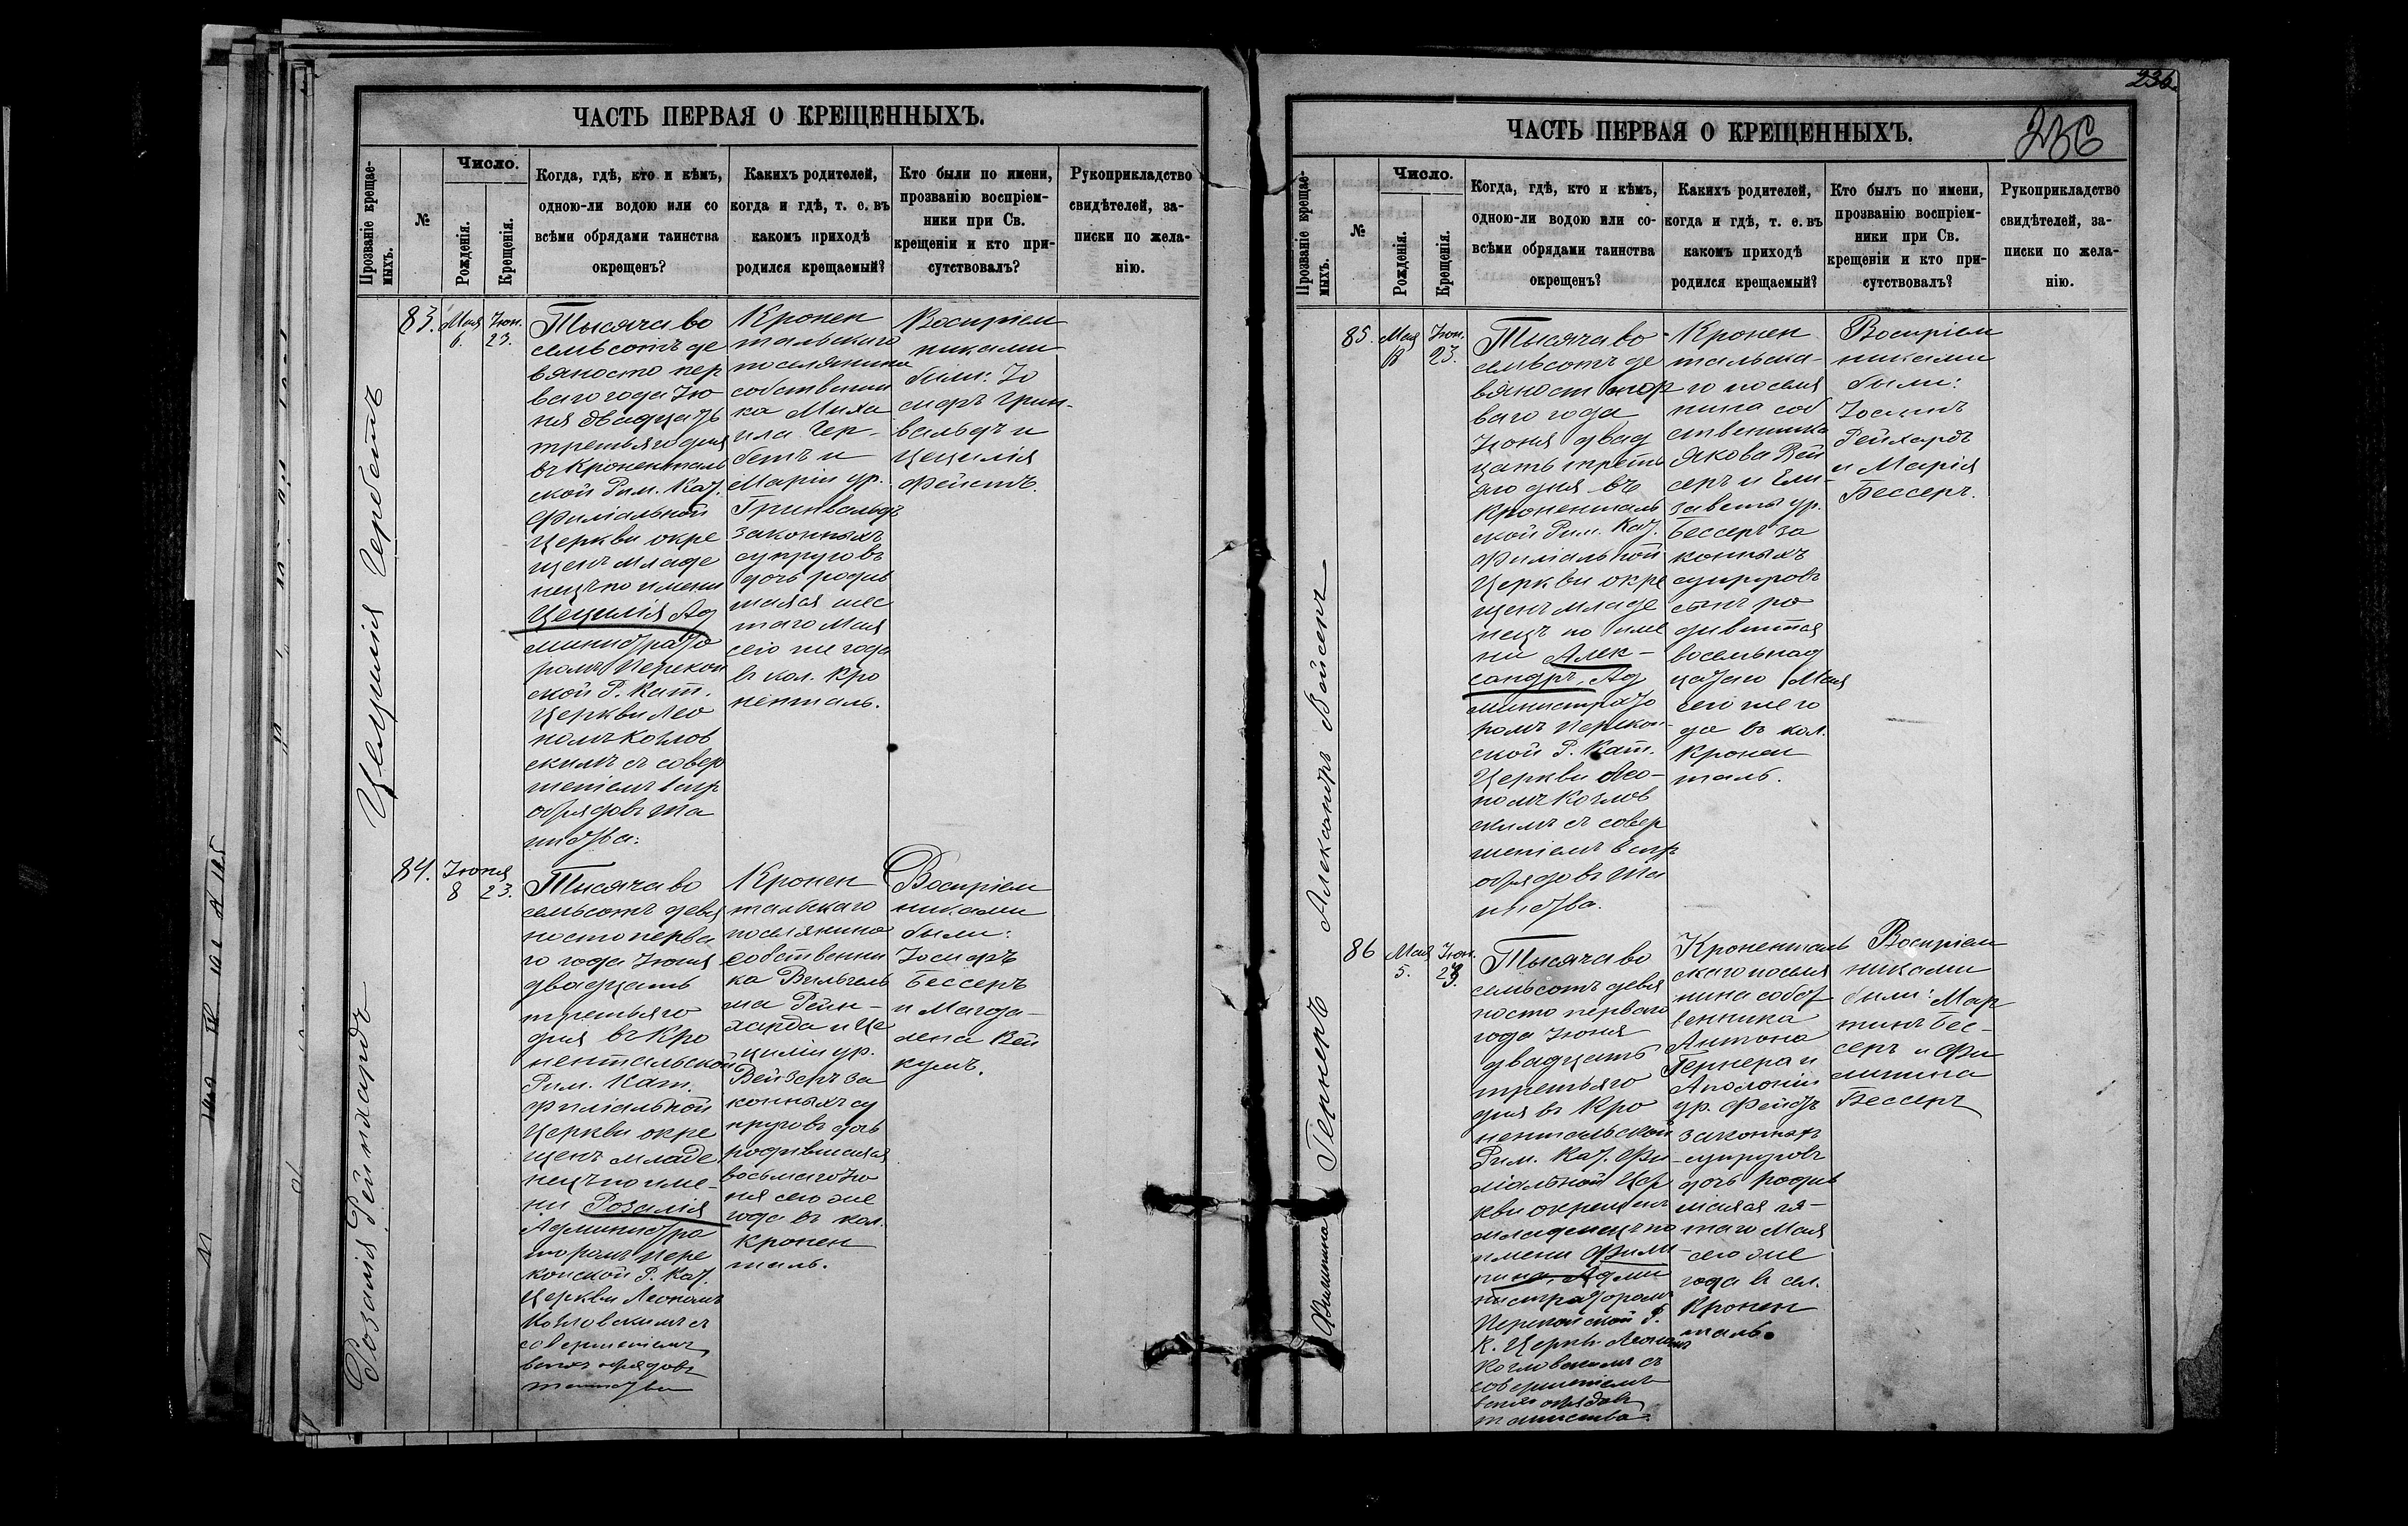 ЧАСТЬ ПЕРВАЯ О КРЕЩЕННЫХЪ.
Прозваніе крещае-
мыхъ.
№
Число.
Рожденія.
Крещенія.
Когда, гдѣ, кто и кѣмъ,
одною-ли водою или со
всѣми обрядами таинства
окрещенъ?
Какихъ родителей,
когда и гдѣ, т. е. въ
какомъ приходѣ
родился крещаемый?
Кто были по имени,
прозванію воспріем-
ники при Св.
крещеніи и кто при-
сутствовалъ?
Рукоприкладство
свидѣтелей, за-
писки по жела-
нію.
Цецилія Гербетъ
83.
Мая
6.
Іюн.
23.
Тысяча во
семьсотъ де
вяносто пер
ваго года Ію
ня двадцать
третьяго дня
въ Кроненталь
ской Рим. Кат.
Филіальной
Церкви окре
щенъ младе
нецъ по имени
Цецилія Ад
министрато
ромъ Перекоп
ской Р. Кат.
Церкви Лео
помъ Козлов
скимъ съ совер
шеніемъ всѣхъ
обрядовъ та
инства.
Кронен
тальскаго
поселянина
собственни
ка Миха
ила Гер-
бетъ и
Маріи ур.
Гринвальдъ
законныхъ
супруговъ
дочь родив
шаяся шес
таго Мая
сего же года
въ кол. Кро
ненталь.
Воспріем
никами
были: Іо
сифъ Грин-
вальдъ и
Цецилія
Фейстъ.
Розалія Рейнхардъ
84.
Іюня
8 23.
Тысяча во
семьсотъ девя
носто перва
го года Іюня
двадцать
третьяго
дня въ Кро
нентальской
Рим. Кат.
Филіальной
Церкви окре
щенъ младе
нецъ по име-
ни Розалія
Администра
торомъ Пере
копской Р. Кат.
Церкви Леопомъ
Козловскимъ съ
совершеніемъ
всѣхъ обрядовъ
таинства
Кронен
тальскаго
поселянина
собственни
ка Вильгель
ма Рейн-
харда и Це
циліи ур.
Вейзеръ за
конныхъ су
пруговъ дочь
родившаяся
восьмаго Ію
ня сего же
года въ кол.
Кронен
таль.
Воспріем
никами
были:
Іосифъ
Бессеръ
и Магда-
лена Вей
кумъ.
236.
236
ЧАСТЬ ПЕРВАЯ О КРЕЩЕННЫХЪ.
Прозваніе крещае-
мыхъ.
№
Число.
Рожденія.
Крещенія.
Когда, гдѣ, кто и кѣмъ,
одною-ли водою или со-
всѣми обрядами таинства
окрещенъ?
Какихъ родителей,
когда и гдѣ, т. е. въ
какомъ приходѣ
родился крещаемый?
Кто былъ по имени,
прозванію воспріем-
ники при Св.
крещеніи и кто при-
сутствовалъ?
Рукоприкладство
свидѣтелей, за-
писки по жела-
нію.
Александръ
85.
Мая
18
Іюн.
23.
Тысяча во
семьсотъ де
вяност пер
ваго года
Іюня двад
цать треть
яго дня въ
Кроненталь
ской Рим. Кат.
Филіальной
Церкви окре
щенъ младе
нецъ по име
ни Алек-
сандръ, Ад
министрато
ромъ Перекоп-
ской Р. Кат.
Церкви Лео-
помъ Козлов
скимъ съ совер
шеніемъ всѣхъ
обрядовъ та
инства.
Кронен
тальска-
го поселя
нина соб
ственника
Якова Вей
серъ и Ели-
заветы ур.
Бессеръ за
конныхъ
супруговъ
сынъ ро
дившійся
восемнад
цатаго Мая
сего же го
да въ кол.
Кронен
таль.
Воспріем
никами
были:
Рейхардъ
и Марія
Бессеръ.
Филипина Гернеръ
86
Мая
5.
Іюн.
23.
Тысяча во
семьсотъ девя
носто перваго
года Іюня
двадцать
третьяго
дня въ Кро
нентальской
Рим. Кат. Фи-
ліальной Цер
кви окрещенъ
младенецъ по
имени Фили-
пина, Адми
нистраторомъ
Перекопской Р.
К. Церкви Леопомъ
Козловскимъ съ
совершеніемъ
всѣхъ обрядовъ
таинства.
Кроненталь
скаго поселя
нина собст
венника
Антона
Гернера и
Аполоніи
ур. Фейстъ
законныхъ
супруговъ
дочь родив
шаяся пя-
таго Мая
сего же
года въ кол.
Кронен
таль.
Воспріем
никами
были: Мар
тинъ Бес-
серъ и Фи
липина
Бессеръ